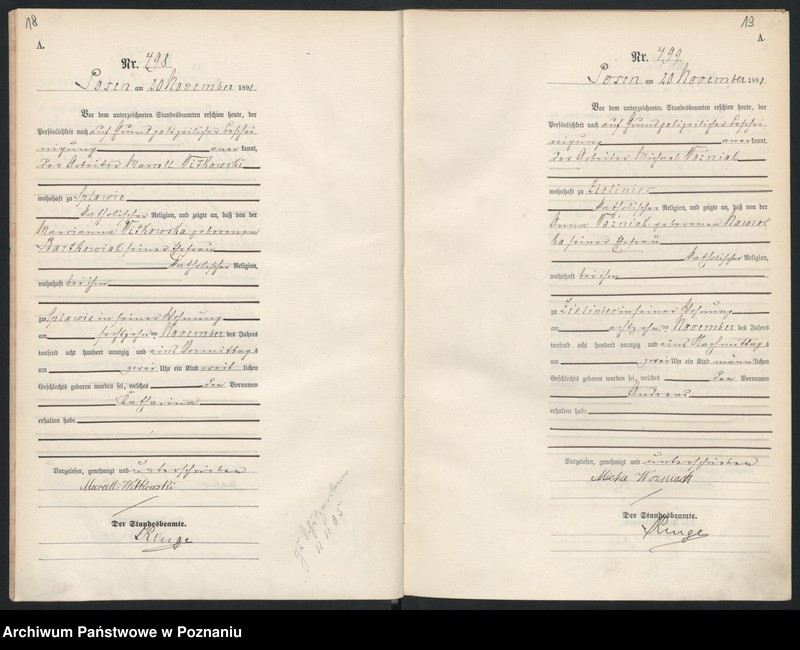 18
A.
Nr. 798
Posen am 20 November 1891
Vor dem unterzeichneten Standesbeamten erschien heute, der
Persönlichkeit nach auf Grund polizeilicher Beschei-
nigung anerkannt,
der Arbeiter Marcell Witkowski
wohnhaft zu Splawie
katholischer Religion, und zeigte an, daß von der
Marianna Witkowska geborenen
Bartkowiak seiner Ehefrau
katholischer Religion,
wohnhaft bei ihm
zu Splawie in seiner Wohnung
am sechzehn ten November des Jahres
tausend acht hundert neunzig und eins Vormittags
um zwei Uhr ein Kind weib lichen
Geschlechts geboren worden sei, welches den Vornamen
Katharina
erhalten habe
Vorgelesen, genehmigt und unterschrieben
Marcell Witkowski
Der Standesbeamte.
11.11.05
19
A.
Nr. 799
Posen am 20 November 1891
Vor dem unterzeichneten Standesbeamten erschien heute, der
Persönlichkeit nach auf Grund polizeilicher Beschei-
nigung anerkannt,
der Arbeiter Michael Woźniak
wohnhaft zu Zieliniec
katholischer Religion, und zeigte an, daß von der
Anna Woźniak geborenen Nawrot
seiner Ehefrau
katholischer Religion,
wohnhaft bei ihm
zu Zieliniec in seiner Wohnung
am achtzehn ten November des Jahres
tausend acht hundert neunzig und eins Nachmittags
um zwei Uhr ein Kind männ lichen
Geschlechts geboren worden sei, welches den Vornamen
Andreas
erhalten habe
Vorgelesen, genehmigt und unterschrieben
Michał Wozniack
Der Standesbeamte.
Archiwum Państwowe w Poznaniu